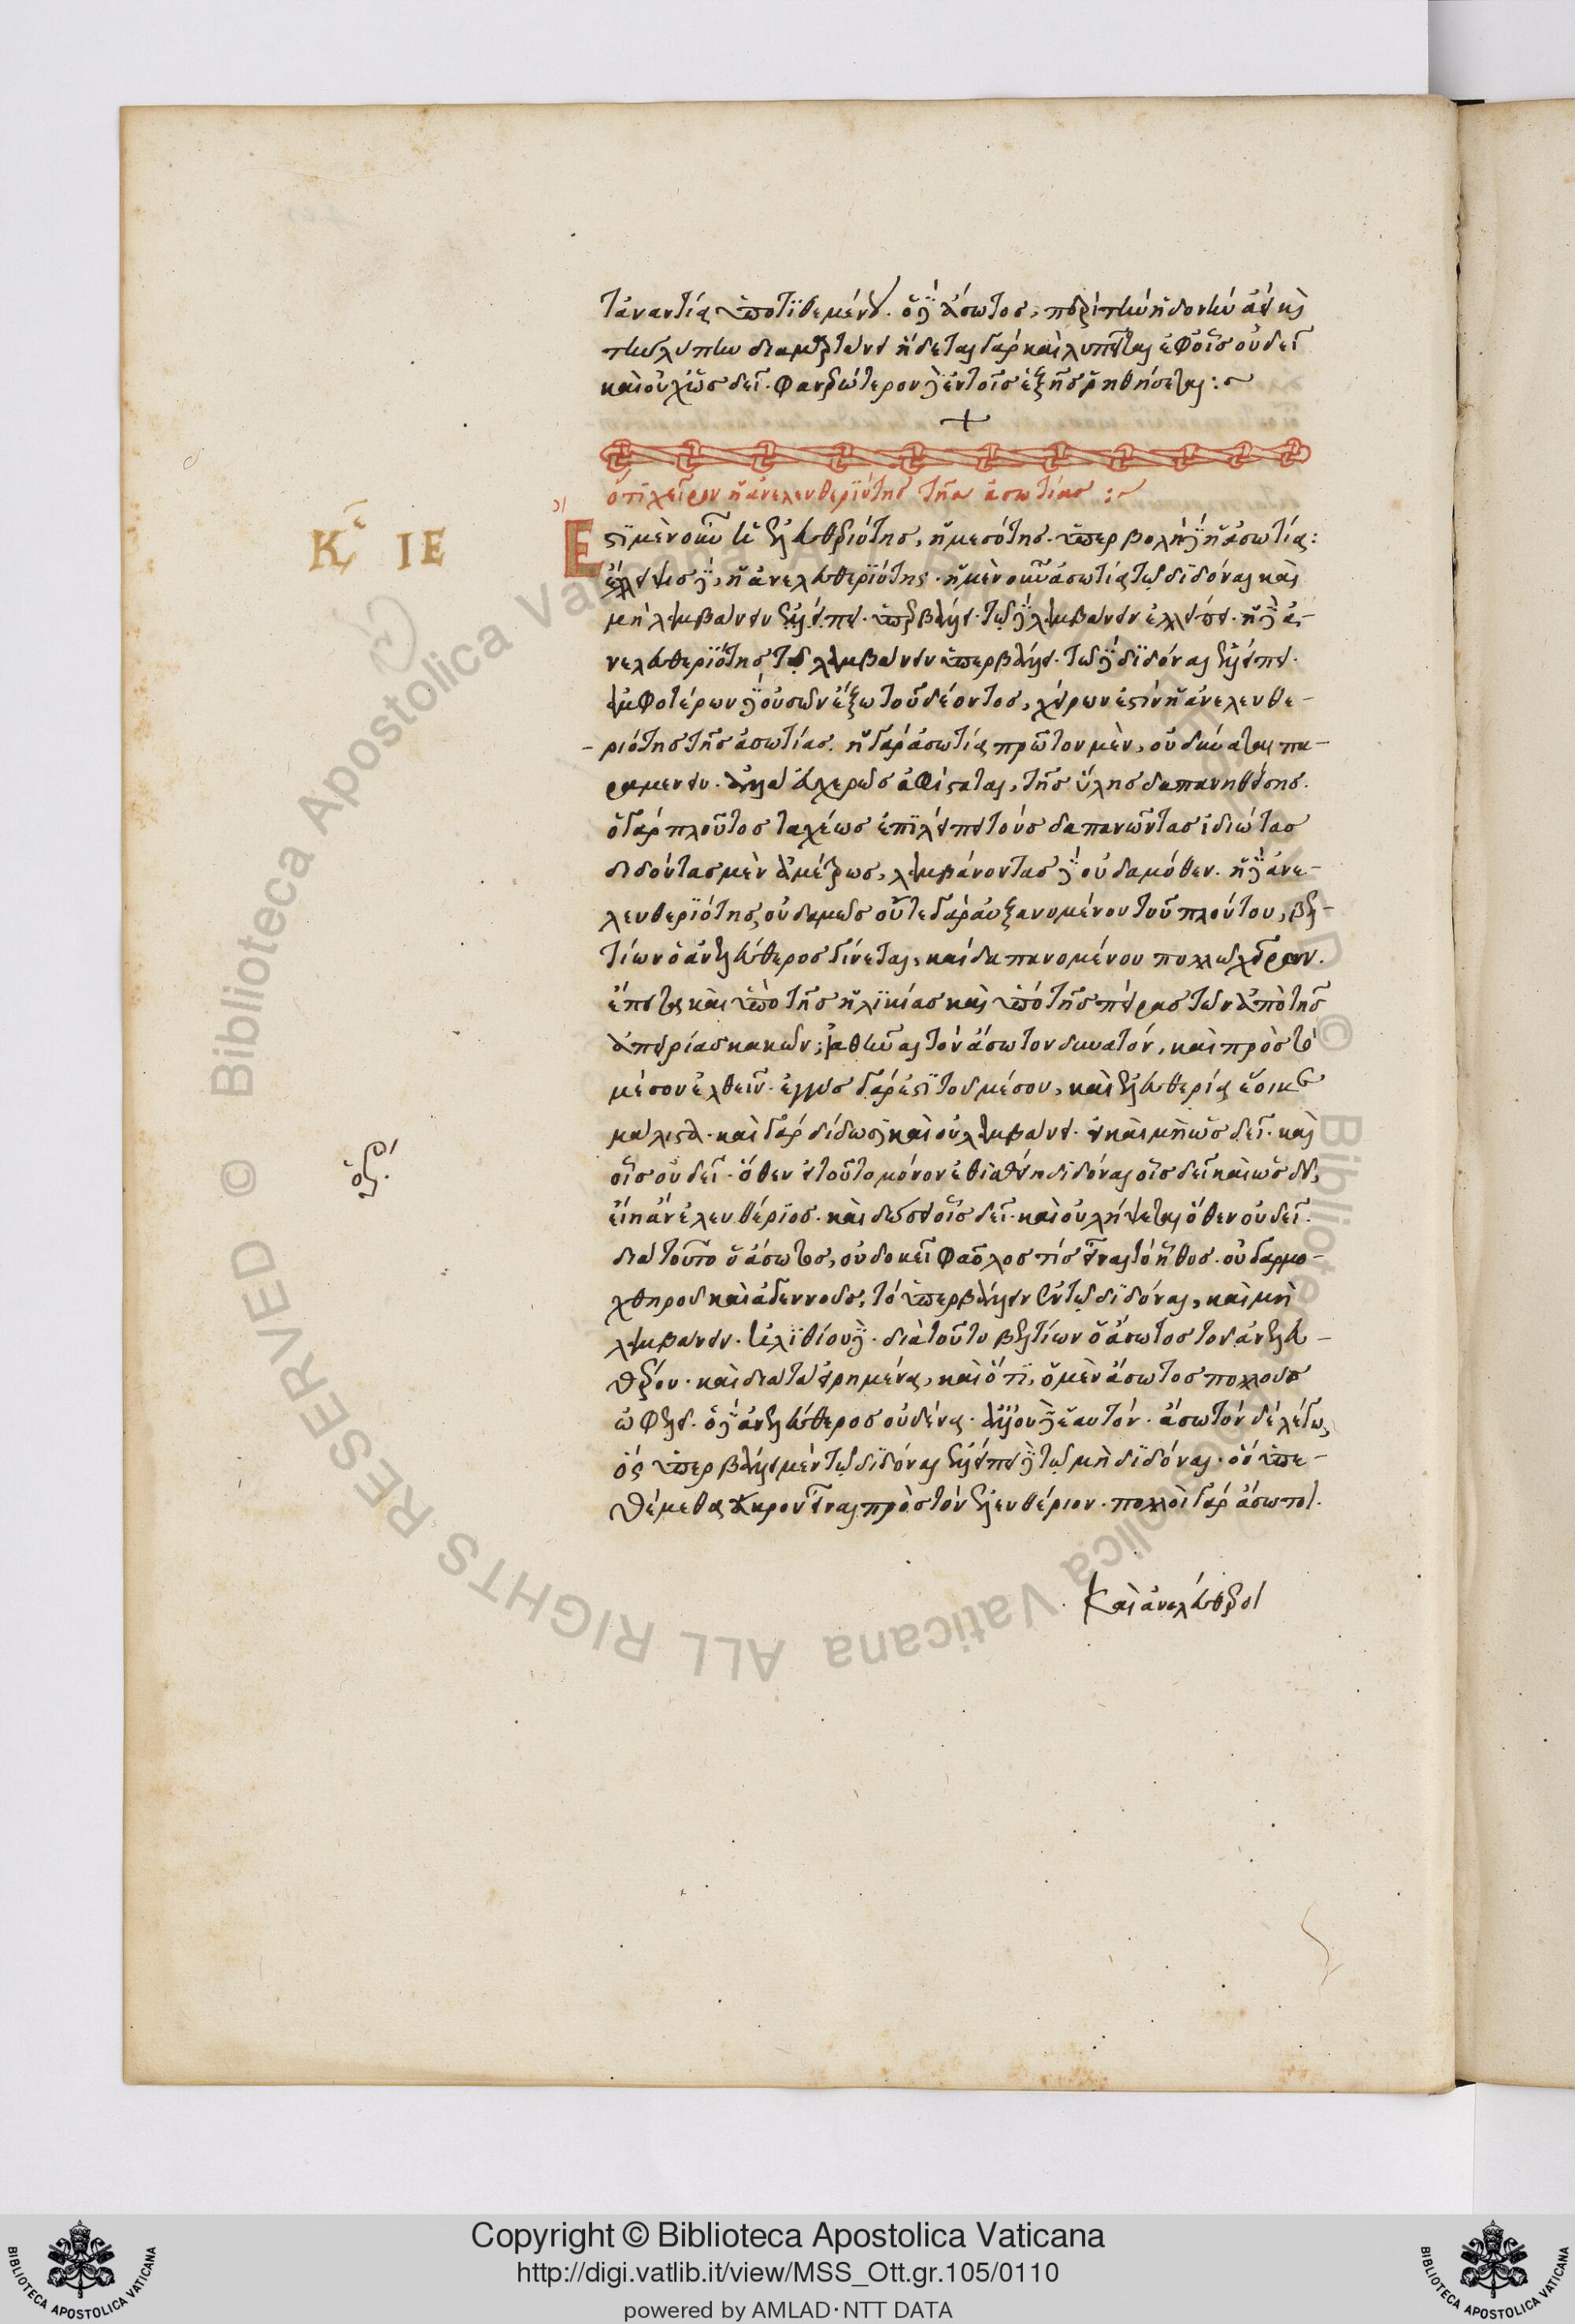 τἀναντία ὑποτιθεμένου. ὁ δὲ ἄσωτος, περὶ τὴν ἡδονὴν ἀεὶ καὶ
τὴν λύπην διαμαρτάνει ἥδεται γὰρ καὶ λυπεῖται ἐφ' οἷς οὐ δεῖ
καὶ οὐχ ὡς δεῖ. φανερώτερον δὲ ἐν τοῖς ἑξῆς ῥηθήσεται:~
ὅτι χεῖρον ἡ ἀνελευθεριότης τῆς ἀσωτίας:~
Κε ΙΕ
Εστὶ μὲν οὖν ἡ ἐλευθεριότης, ἡ μεσότης. ὑπερβολὴ δὲ ἡ ἀσωτία:
ἔλλειψις δὲ, ἡ ἀνελευθεριότης. ἡ μὲν οὖν ἀσωτία τῷ διδόναι καὶ
μὴ λαμβάνειν ὑπερβάλλει. τῷ δὲ λαμβάνειν ἐλλείπει. ἡ δὲ ἀ-
νελευθεριότης τῷ λαμβάνειν ὑπερβάλλει. τῷ δὲ διδόναι ἐλλείπει.
ἀμφοτέρων δὲ οὐσῶν ἔξω τοῦ δέοντος, χείρων ἐστὶν ἡ ἀνελευθε-
ριότης τῆς ἀσωτίας. ἡ γὰρ ἀσωτία πρῶτον μὲν, οὐ δύναται πα-
ραμένειν. ἀλλ' εὐχερῶς ἀφίσταται, τῆς ὕλης δαπανηθείσης.
ὁ γὰρ πλοῦτος ταχέως ἐπιλείπει τοὺς δαπανῶντας ἰδιώτας
διδόντας μὲν ἀμέτρως, λαμβάνοντας δὲ οὐδαμόθεν. ἡ δὲ ἀνε-
λευθεριότης οὐδαμῶς οὔτε γὰρ αὐξανομένου τοῦ πλούτου, βελ-
τίων ὁ ἀνελεύθερος γίνεται, καὶ δαπανομένου πολλῷ χείρων.
ἔπειτα καὶ ὑπὸ τῆς ἡλικίας καὶ ὑπὸ τῆς πείρας τῶν ἀπὸ τῆς
ἀπειρίας κακῶν, ἰαθῆναι τὸν ἄσωτον δυνατόν, καὶ πρὸς τὸ
μέσον ἐλθεῖν. ἐγγὺς γάρ ἐστι τοῦ μέσου, καὶ ἐλευθερίᾳ ἔοικε
μάλιστα. καὶ γὰρ δίδωσι καὶ οὐ λαμβάνει. εἰ καὶ μὴ ὡς δεῖ. καὶ
οἷς οὐ δεῖ. ὅθεν εἰ τοῦτο μόνον ἐθισθείη διδόναι οἷς δεῖ καὶ ὡς δεῖ,
εἴη ἂν ἐλευθέριος. καὶ δώσει οἷς δεῖ. καὶ οὐ λήψεται ὅθεν οὐ δεῖ.
διὰ τοῦτο ὁ ἄσωτος, οὐ δοκεῖ φαῦλός τις εἶναι τὸ ἦθος. οὐ γὰρ μο-
χθηροῦ καὶ ἀγεννοῦς, τὸ ὑπερβάλλειν ἐν τῷ διδόναι, καὶ μὴ
λαμβάνειν. ἠλιθίου δέ. διὰ τοῦτο βελτίων ὁ ἄσωτος τοῦ ἀνελευ-
θέρου. καὶ διὰ τὰ εἰρημένα, καὶ ὅτι, ὁ μὲν ἄσωτος πολλοὺς
ὠφελεῖ. ὁ δὲ ἀνελεύθερος οὐδένα. ἀλλ' οὐδὲ ἑαυτόν. ἄσωτον δὲ λέγω,
ὃς ὑπερβάλλει μὲν τῷ διδόναι ἐλλείπει δὲ τῷ μὴ διδόναι. ὃν ὑπε-
θέμεθα ἄκρον εἶναι πρὸς τὸν ἐλευθέριον. πολλοὶ γὰρ ἄσωτοι.
καὶ ἀνελεύθεροι
Copyright © Biblioteca Apostolica Vaticana
http://digi.vatlib.it/view/MSS_Ott.gr.105/0110
powered by AMLAD · NTT DATA
BIBLIOTECA APOSTOLICA VATICANA
BIBLIOTECA APOSTOLICA VATICANA
© Biblioteca Apostolica Vaticana ALL RIGHTS RESERVED